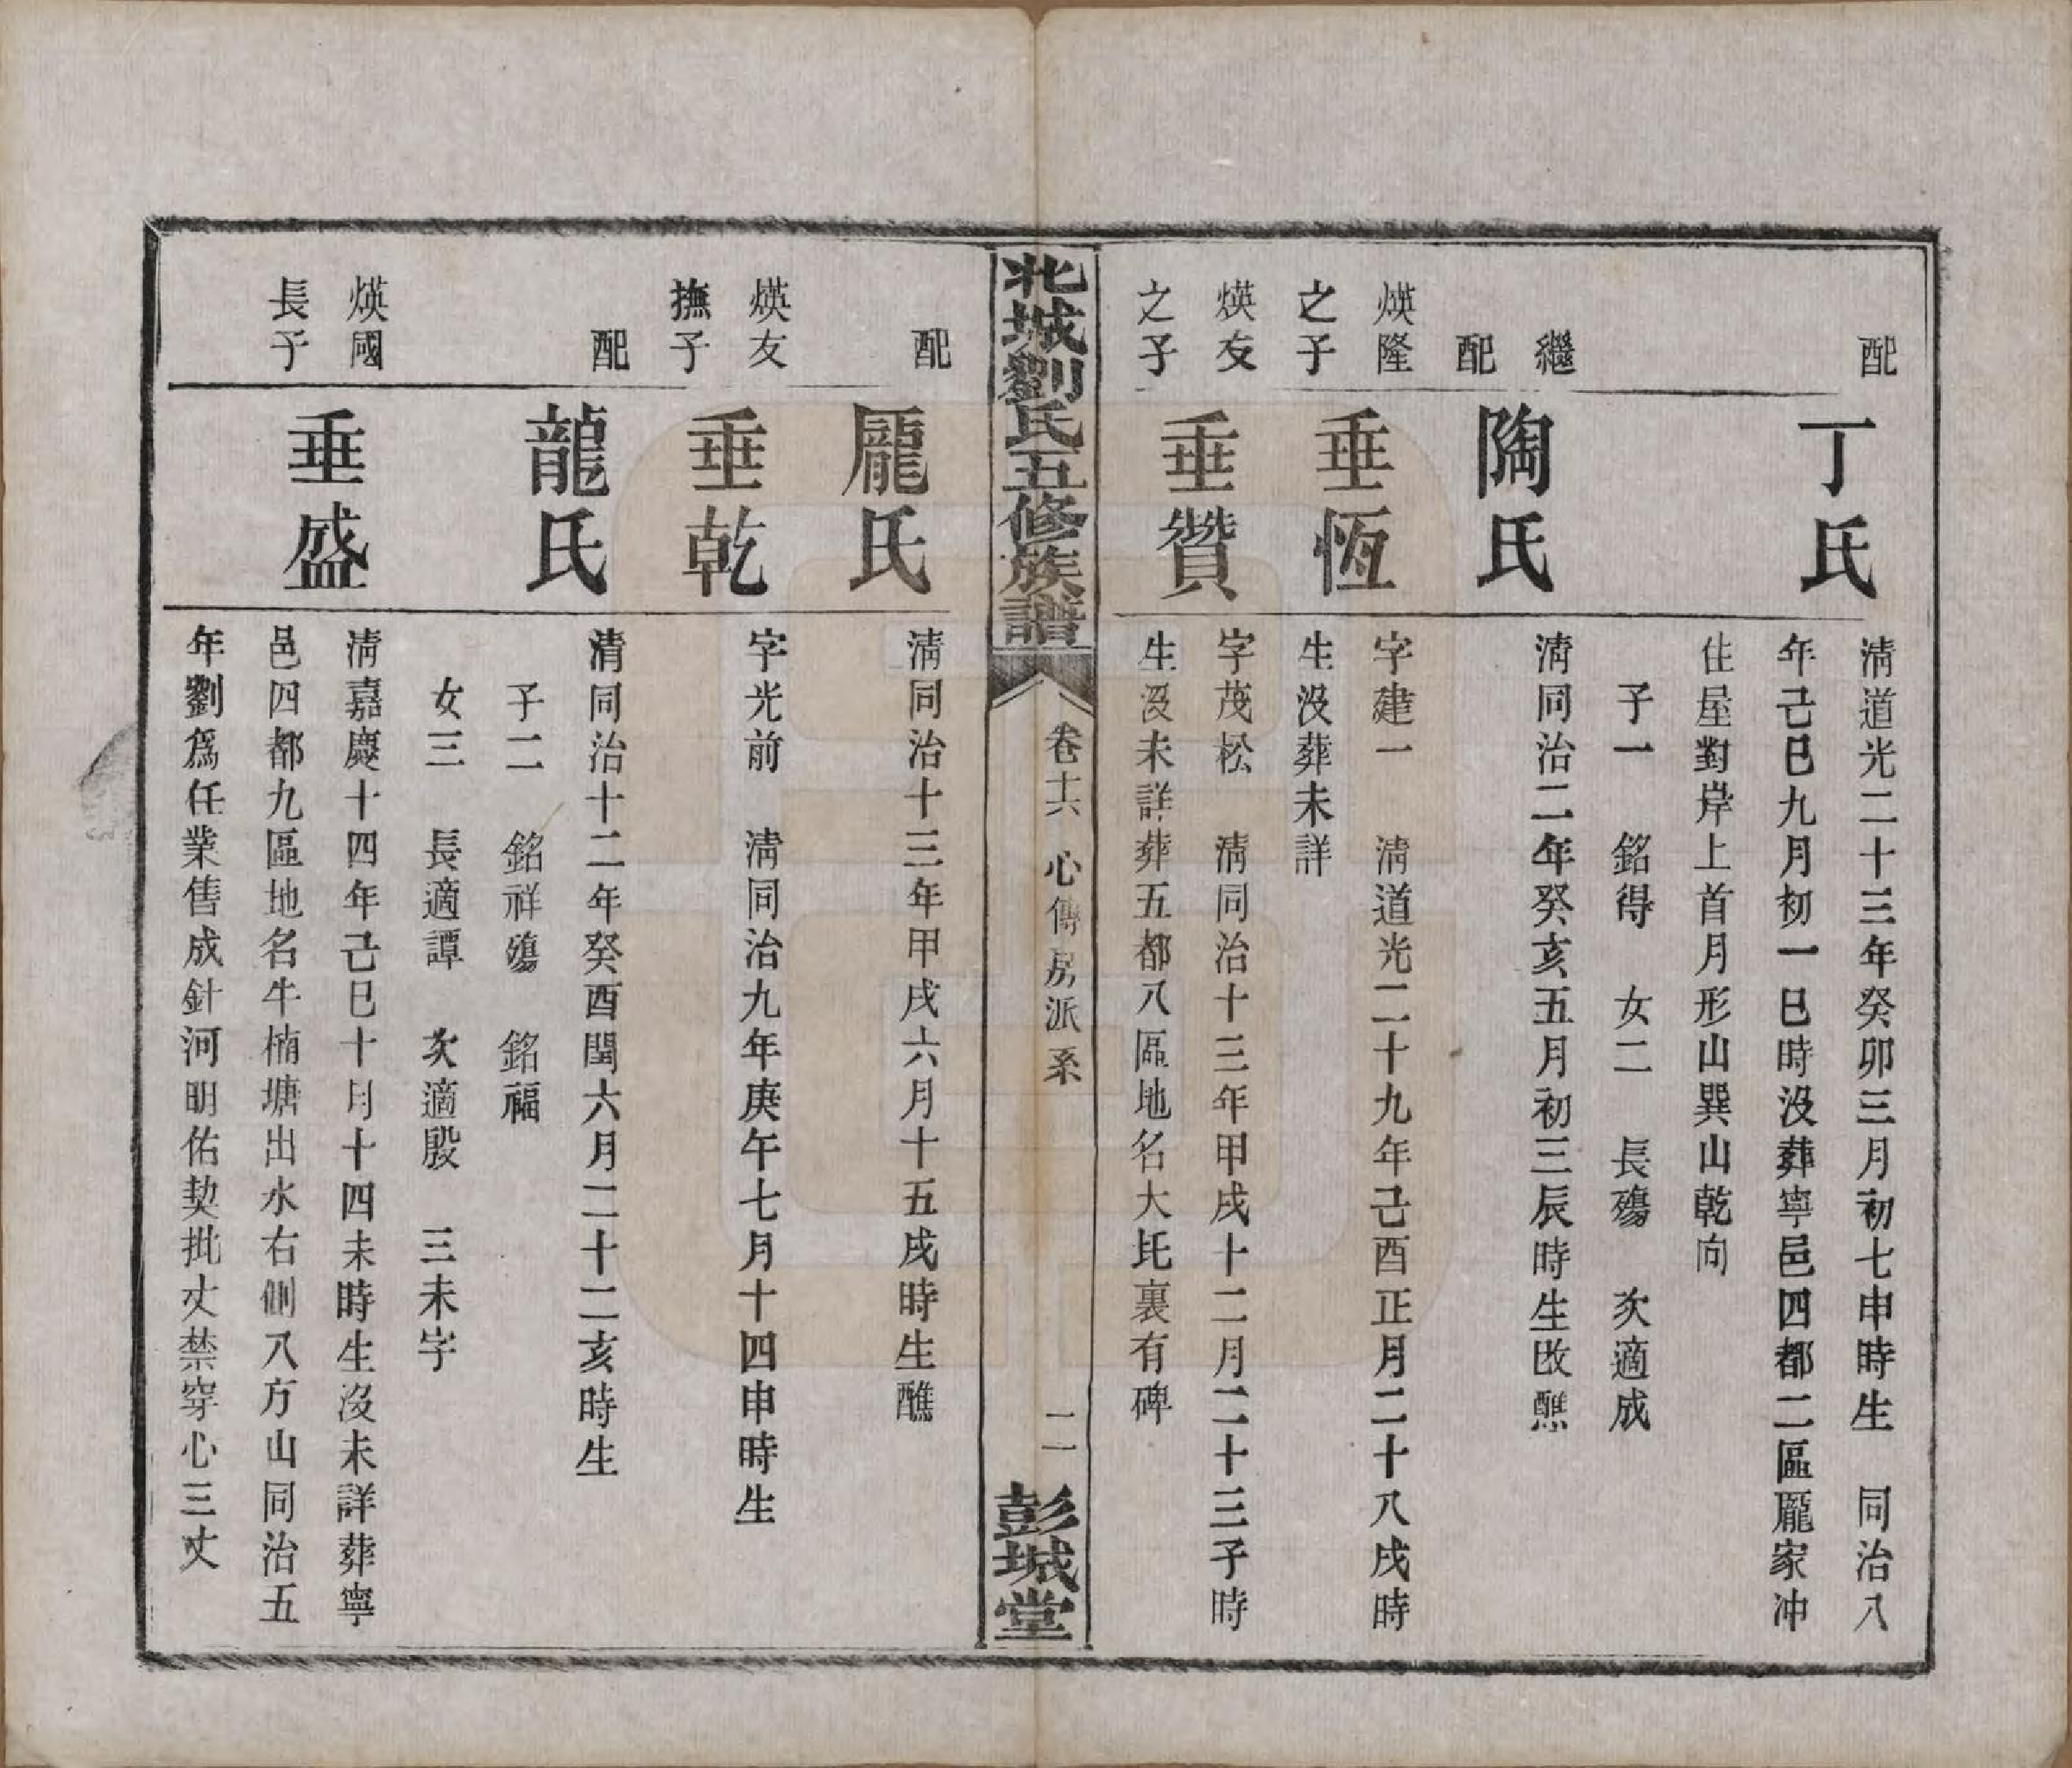 配
丁氏
清道光二十三年癸卯三月初七申時生　同治八
年己巳九月初一巳時沒葬寧邑四都二區龎家冲
住屋對岸上首月形山巽山乾向
子一　銘得　女二　長殤　次適成
繼
配
陶氏
清同治二年癸亥五月初三辰時生改醮
煐隆
之子
垂恆
字建一　清道光二十九年己酉正月二十八戌時
生沒葬未詳
煐友
之子
垂贊
字茂松　清同治十三年甲戌十二月二十三子時
生沒未詳葬五都八區地名大坬裏有碑
北城劉氏五修族譜
卷十六　心傳房派系
二
彭城堂
配
龎氏
清同治十三年甲戌六月十五戌時生醮
煐友
撫子
垂乾
字光前　清同治九年庚午七月十四申時生
配
龍氏
清同治十二年癸酉閏六月二十二亥時生
子二　銘祥殤　銘福
女三　長適譚　次適殷　三未字
煐國
長子
垂盛
清嘉慶十四年己巳十月十四未時生沒未詳葬寧
邑四都九區地名牛楠塘出水右側八方山同治五
年劉爲任業售成針河明佑契批丈禁穿心三丈